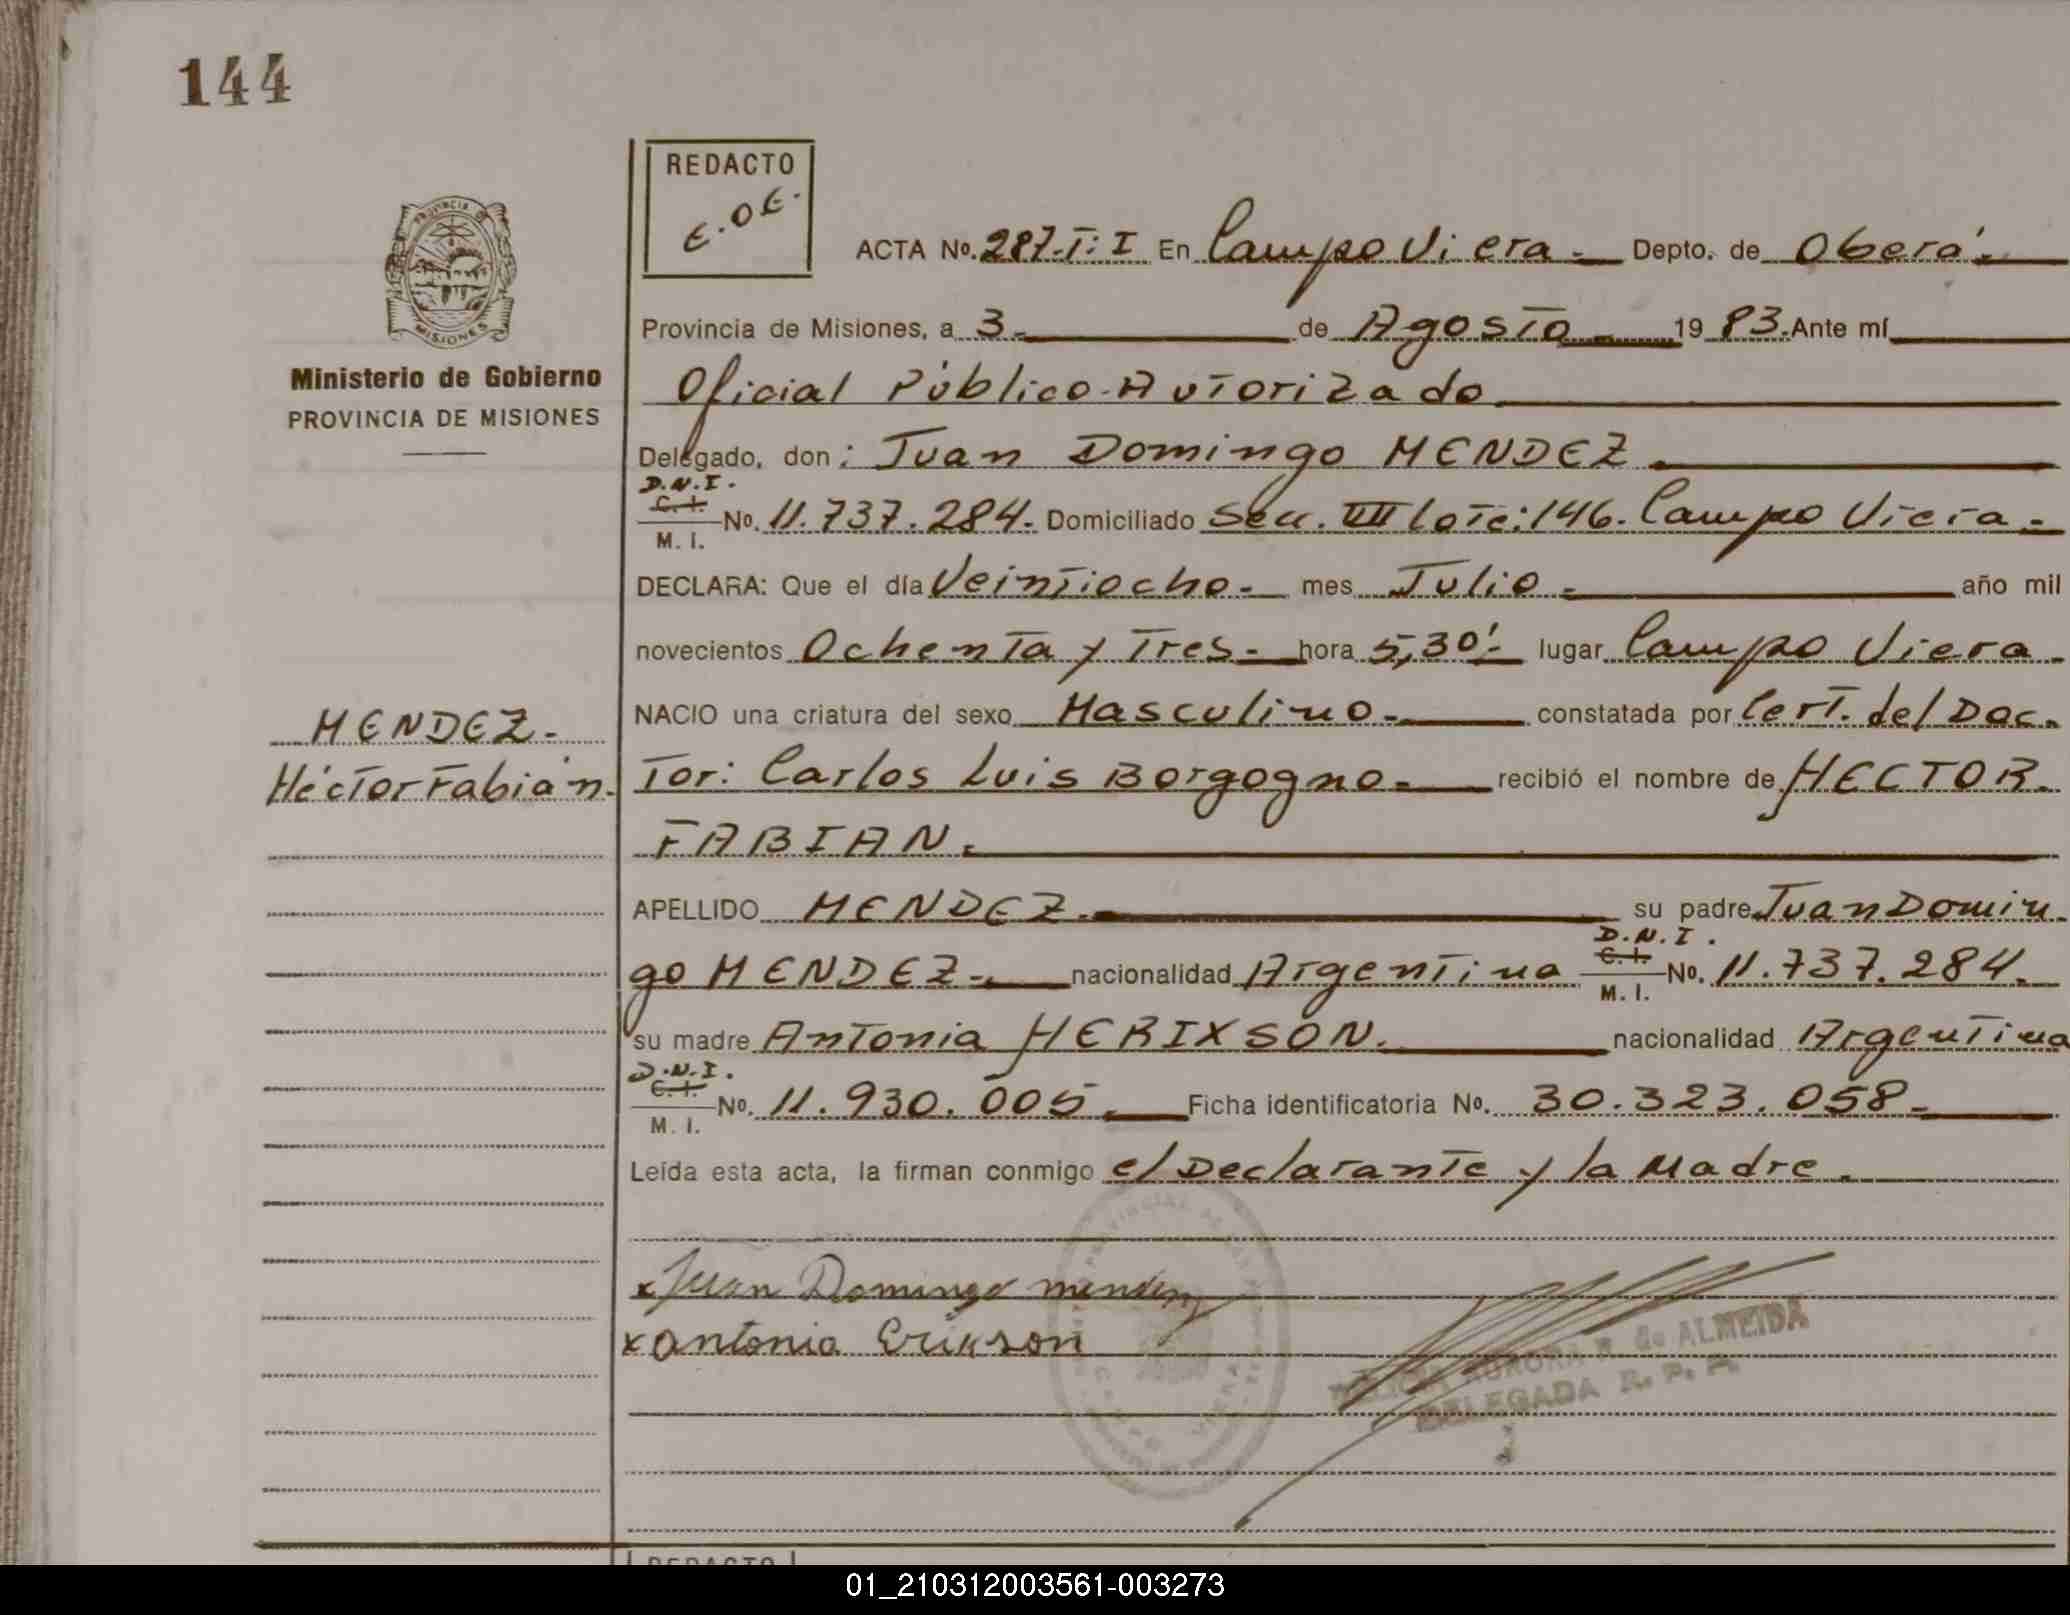 144
REDACTO
E.O.E.
PROVINCIA DE
MISIONES
Ministerio de Gobierno
PROVINCIA DE MISIONES
ACTA No. 287-T:I En Campo Viera.- Depto. de Oberá.-
Provincia de Misiones, a 3.- de Agosto 19 83. Ante mí
Oficial Público-Autorizado
Delegado, don: Juan Domingo MENDEZ.
D.N.I.
C.I.
M. I.
No. 11.737.284. Domiciliado Secc. VIII Lote:146. Campo Viera.-
DECLARA: Que el día Veintiocho.- mes Julio.- año mil
novecientos Ochenta y Tres.- hora 5,30'.- lugar Campo Viera.
NACIO una criatura del sexo Masculino.- constatada por Cert. del Doc.
MENDEZ.-
Héctor Fabián.
tor: Carlos Luis Borgogno.- recibió el nombre de HECTOR.
FABIAN.
APELLIDO MENDEZ.- su padre Juan Domin-
D.N.I.
C.I.
M. I.
go MENDEZ.- nacionalidad Argentina No. 11.737.284.
su madre Antonia HERIXSON. nacionalidad Argentina
D.N.I.
C.I.
M. I.
No. 11.930.005. Ficha identificatoria No. 30.323.058.-
Leída esta acta, la firman conmigo el Declarante y la Madre.
x Juan Domingo mendez
x antonia Erikson
AURORA R. de ALMEIDA
DELEGADA R. P. P.
REDACTO
01_210312003561-003273